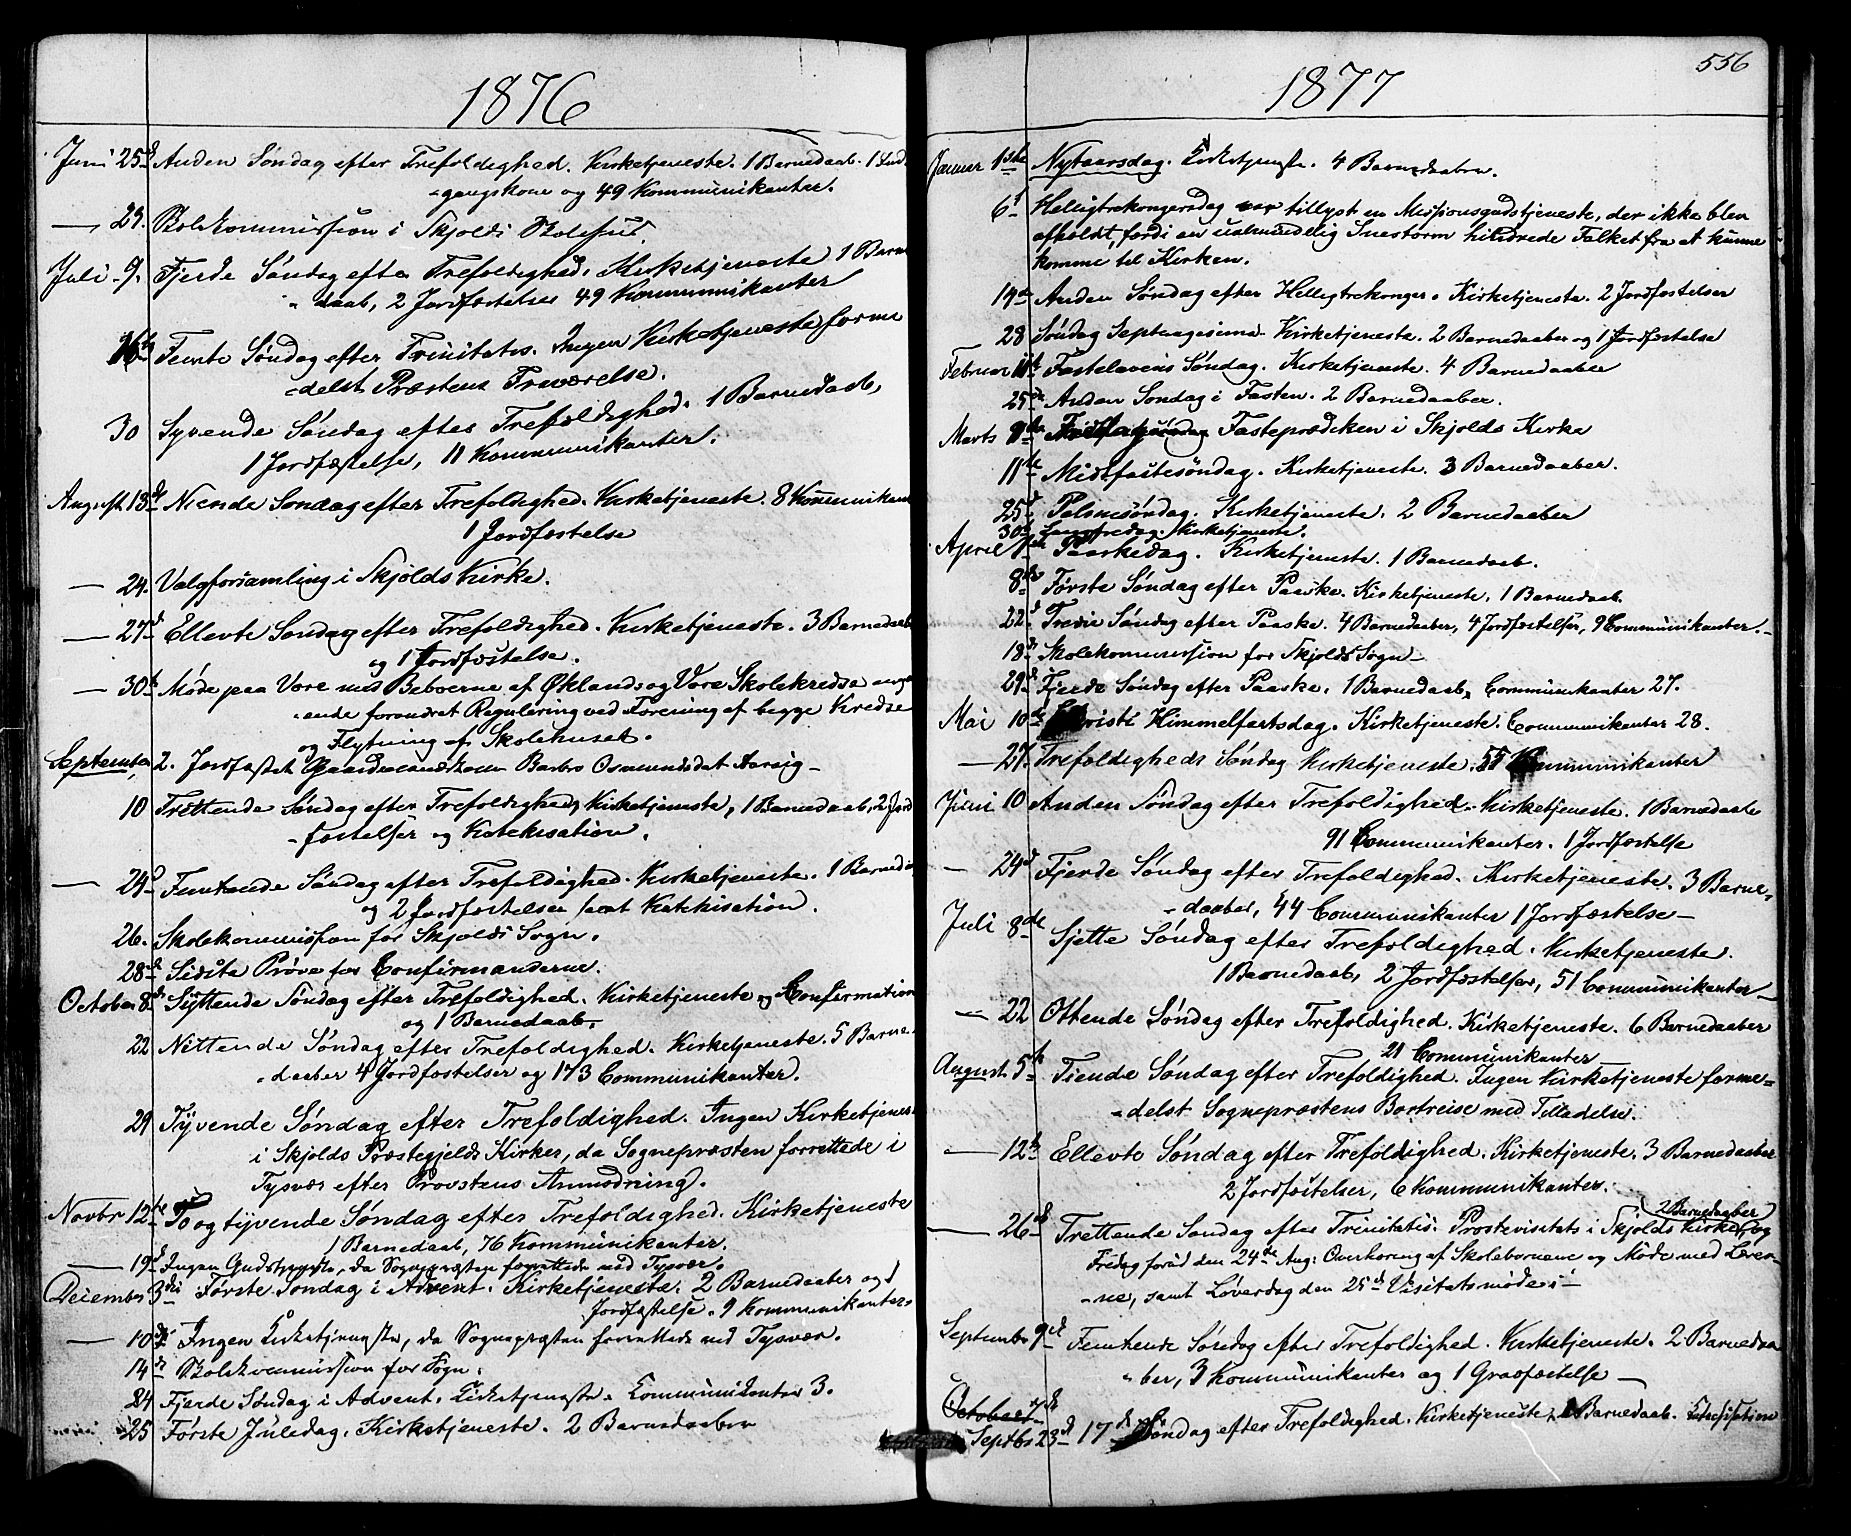 1876
Juni 25d Anden Søndag efter Trefoldighed. Kirketjeneste. 1 Barnedaab. 1 Ind-
-gangskone og 49 Kommunikanter.
— 29. Skolekommission i Skjolds Skolehus.
Juli 9. Fjerde Søndag efter Trefoldighed. Kirketjeneste 1 Barne
daab, 2 Jordfæstelser 49 Kommunikanter
16de Femte Søndag efter Trinitatis. Ingen Kirketjeneste forme
-delst Præstens Fraværelse.
30 Syvende Søndag efter Trefoldighed. 1 Barnedaab,
1 Jordfæstelse, 11 Kommunikanter.
August 13de Niende Søndag efter Trefoldighed. Kirketjeneste. 8 Kommunikan
1 Jordfæstelse
— 24. Valgforsamling i Skjolds Kirke.
— 27d Ellevte Søndag efter Trefoldighed. Kirketjeneste. 3 Barnedaab
og 1 Jordfæstelse.
— 30te Møde paa Vore med Beboerne af Øklands og Vore Skolekredse angaa
-ende forandret Regulering ved Forening af begge Kredse
og Flytning af Skolehuset.
September 2. Jordfæstet Gaardmandskone Barbro Osmundsdat Aarvig -
10 Trettende Søndag efter Trefoldighed, Kirketjeneste, 1 Barnedaab, 2 Jord
-fæstelser og Katekisation.
— 24d Femtende Søndag efter Trefoldighed. Kirketjeneste. 1 Barneda
og 2 Jordfæstelser samt Katekisation.
26. Skolekommission for Skjolds Sogn.
28de Sidste Prøve for Confirmanderne.
October 8de Syttende Søndag efter Trefoldighed. Kirketjeneste og Confirmation
og 1 Barnedaab.
22 Nittende Søndag efter Trefoldighed. Kirketjeneste. 5 Barne-
-daaber 4 Jordfæstelser og 173 Communikanter.
29 Tyvende Søndag efter Trefoldighed. Ingen Kirketjenes-
i Skjolds Præstegjelds Kirker, da Sognepræsten forrettede i
Tysvær efter Provstens Anmodning.
Novbr 12te To og tyvende Søndag efter Trefoldighed. Kirketjeneste
1 Barnedaab, 76 Kommunikanter.
— 19d Ingen Gudstjeneste, da Sognepræsten forrettede ved Tysvær.
Decembr 3die Første Søndag i Advent. Kirketjeneste. 2 Barnedaaber og 1
Jordfæstelse. 9 Kommunikanter.
— 10de Ingen Kirketjeneste, da Sognepræsten forrettede ved Tysvær.
14de Skolekommission for Sogn.
24 Fjerde Søndag i Advent. Kirketjeneste. Kommunikanter 3.
25 Første Juledag. Kirketjeneste. 2 Barnedaaber
556
1877
Januar 1ste Nytaarsdag. Kirketjeneste. 4 Barnedaaber.
6t Helligtrekongersdag var tillyst en Missionsgudstjeneste, der ikke blev
afholdt, fordi en ualmindelig Snestorm hindrede Folket fra at kunne
komme til Kirken.
14de Anden Søndag efter Helligtrekonger. Kirketjeneste. 2 Jordfæstelser
28 Søndag Septuagesima. Kirketjeneste. 2 Barnedaaber og 1 Jordfæstelse
Februar 11te Fastelavens Søndag. Kirketjeneste. 4 Barnedaaber
25de Anden Søndag i Fasten. 2 Barnedaaber.
Marts 9de Fasteprædiken i Skjolds Kirke
11te Midfastesøndag. Kirketjeneste. 3 Barnedaaber.
25d Palmesøndag. Kirketjeneste. 2 Barnedaaber
30te Langfredag. Kirketjeneste.
April 1ste Paaskedag. Kirketjeneste. 1 Barnedaab.
8de Første Søndag efter Paaske. Kirketjeneste. 1 Barnedaab.
22d Tredie Søndag efter Paaske. 4 Barnedaaber, 4 Jordfæstelser, 9 Communikanter.-
18de Skolekommission for Skjolds Sogn -
29d Fjerde Søndag efter Paaske. 1 Barnedaab, Communikanter 27.
Mai 10de Christi Himmelfartsdag. Kirketjeneste. Communikanter 28.
— 27. Trefoldigheds Søndag Kirketjeneste. 55 Kommunikanter
Juni 10 Anden Søndag efter Trefoldighed. Kirketjeneste. 1 Barnedaab
91 Communikanter. 1 Jordfæstelse
— 24d Fjerde Søndag efter Trefoldighed. Kirketjeneste. 3 Barne-
-daaber, 44 Communikanter 1 Jordfæstelse -
Juli 8de Sjette Søndag efter Trefoldighed. Kirketjeneste.
1 Barnedaab, 2 Jordfæstelser, 51 Communikanter -
— 22 Ottende Søndag efter Trefoldighed. Kirketjeneste. 6 Barnedaaber
21 Communikanter
August 5te Tiende Søndag efter Trefoldighed. Ingen Kirketjeneste forme-
-delst Sognepræstens Bortreise med Tilladelse.
— 12te Ellevte Søndag efter Trefoldighed. Kirketjeneste. 3 Barnedaaber
2 Jordfæstelser, 6 Kommunikanter.
2 Barnedaaber
— 26de Trettende Søndag efter Trinitatis. Prostevisitats i Skjolds Kirke, og
Fredag forud den 24de Aug: Overhøring af Skolebørnene og Møde med Lærer-
-ne, samt Løverdag den 25d Visitatsmøde i
Septembr 9d Femtende Søndag efter Trefoldighed. Kirketjeneste. 2 Barnedaa
-ber, 3 Kommunikanter og 1 Gravfæstelse —
October 7de
Septbr 23d 17de Søndag efter Trefoldighed. Kirketjeneste, 1 Barnedaab.